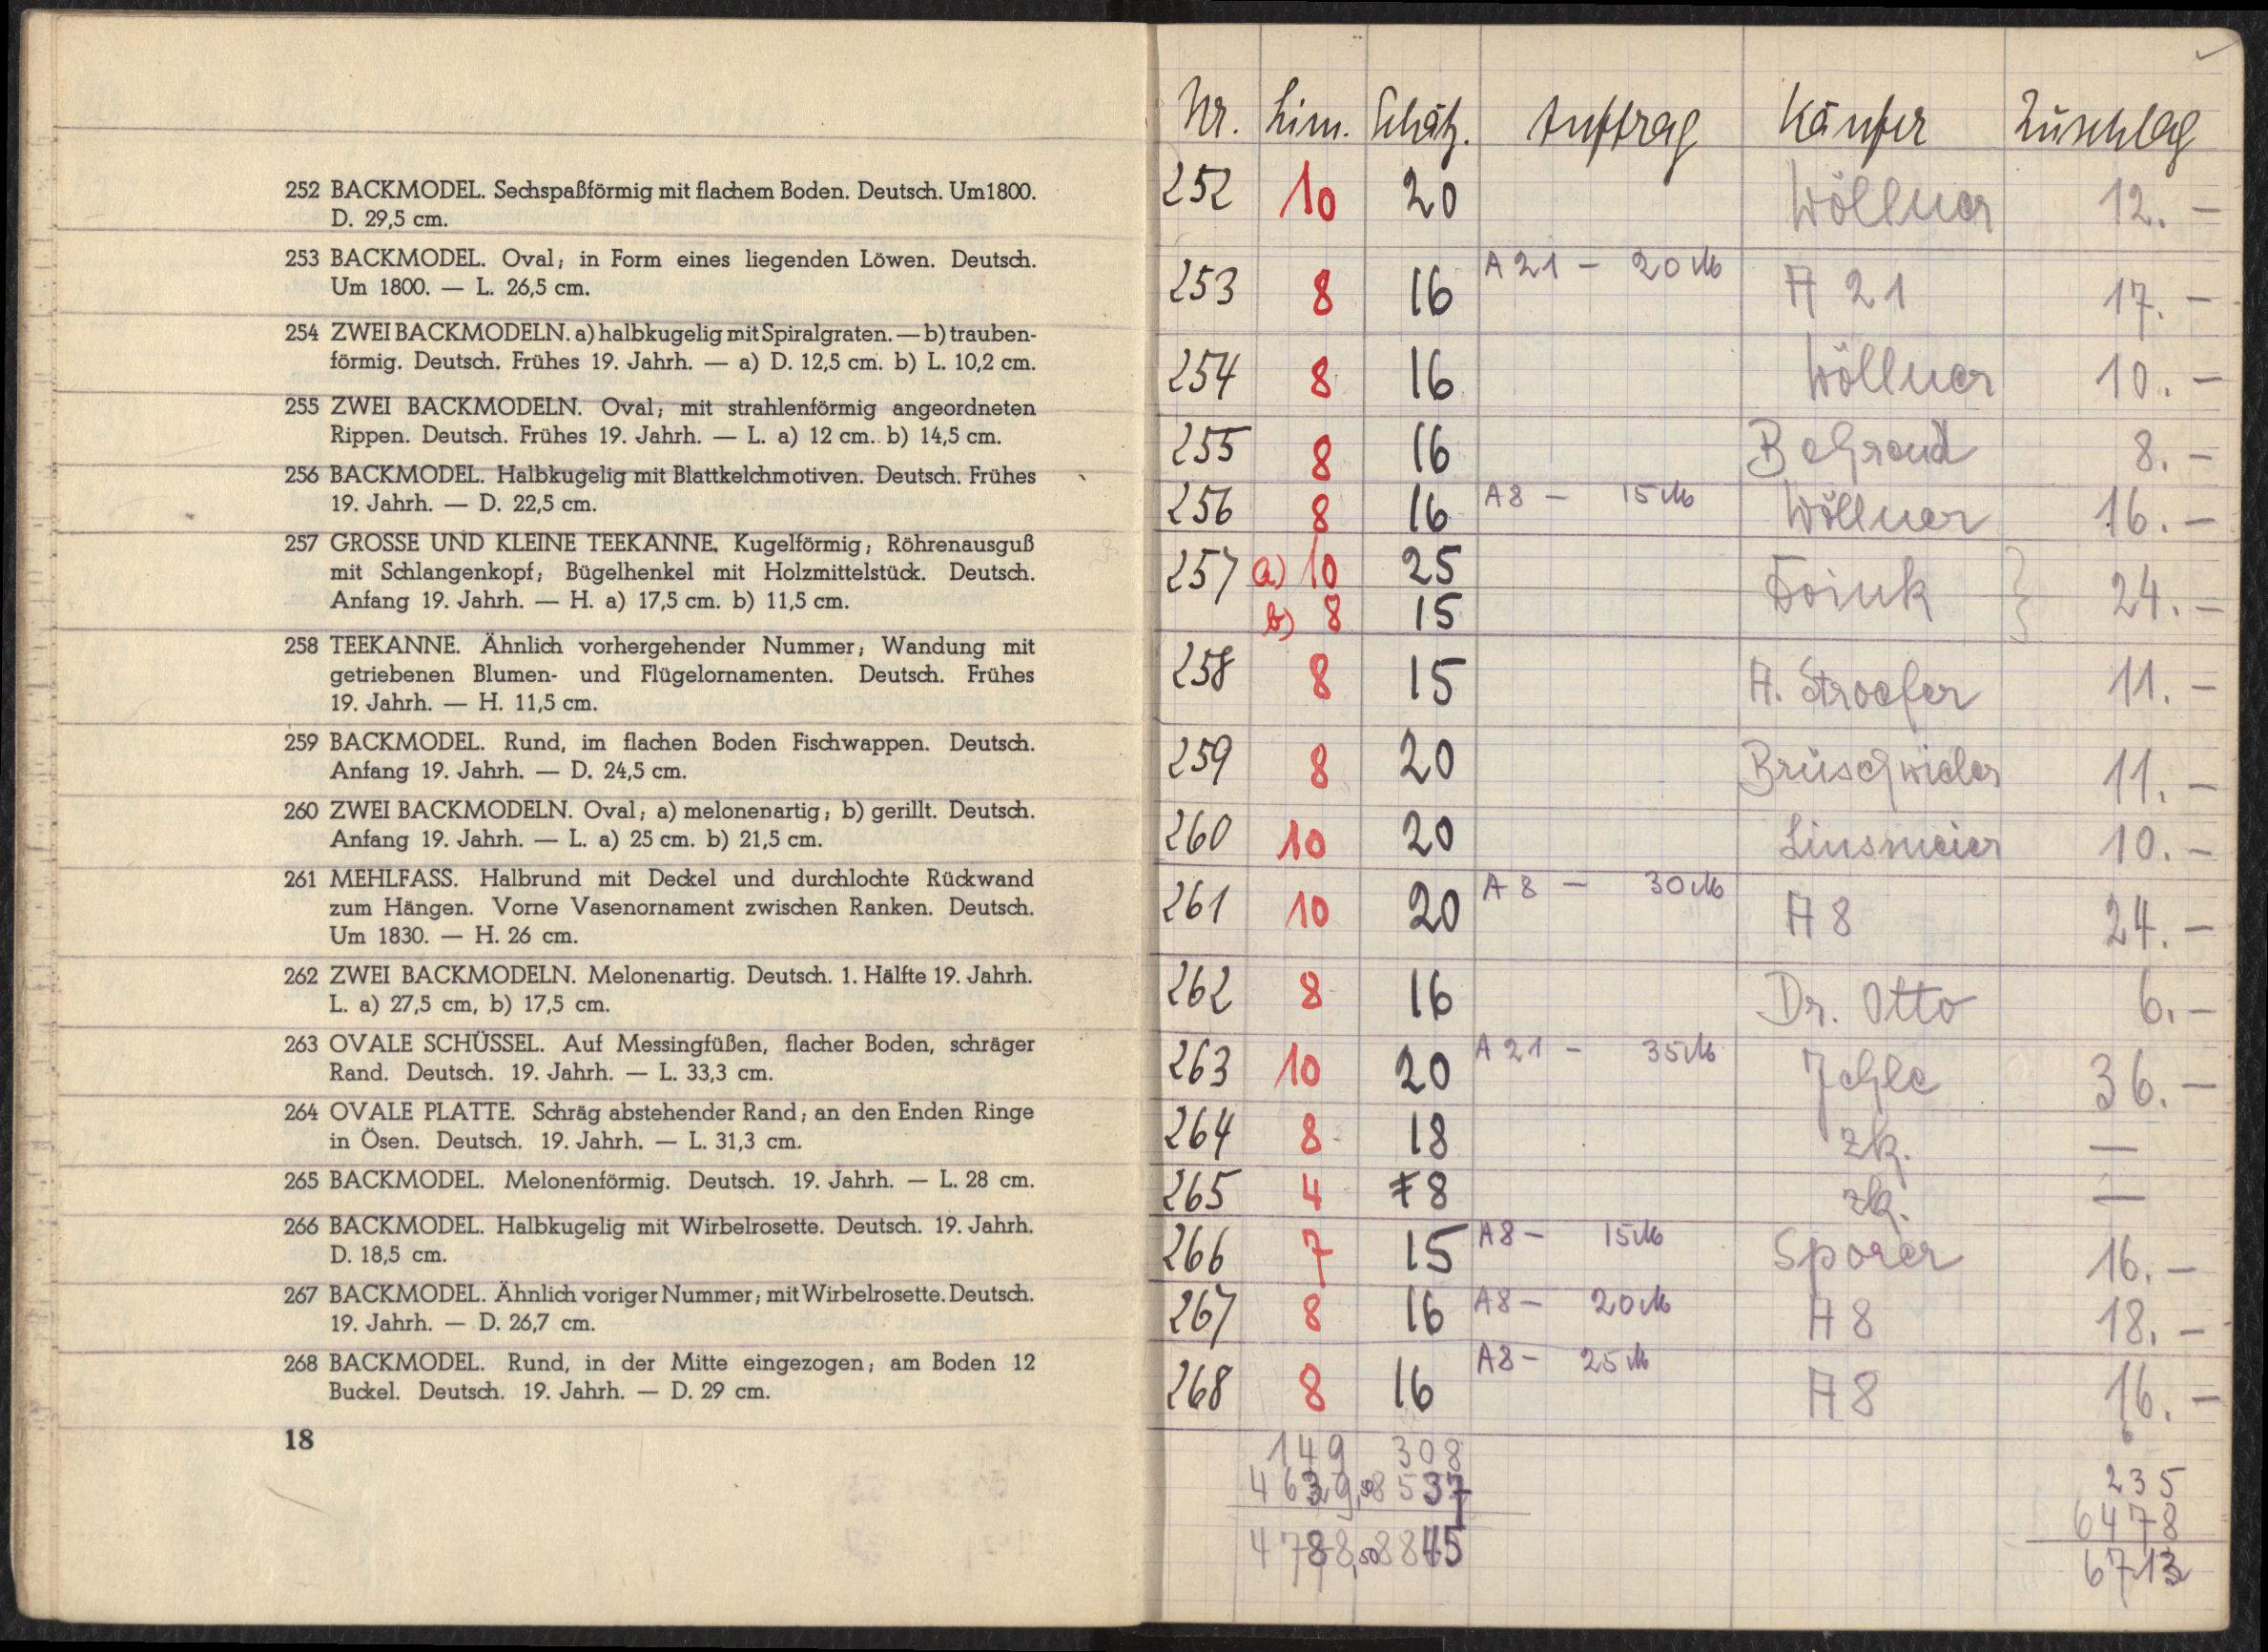 252 BACKMODEL. Sechspaßförmig mit flachem Boden. Deutsch. Um1800.
D. 29,5 cm.
253 BACKMODEL. Oval; in Form eines liegenden Löwen. Deutsch.
Um 1800. — L. 26,5 cm.
254 ZWEI BACKMODELN. a) halbkugelig mit Spiralgraten. — b) trauben-
förmig. Deutsch. Frühes 19. Jahrh. — a) D. 12,5 cm. b) L. 10,2 cm.
255 ZWEI BACKMODELN. Oval; mit strahlenförmig angeordneten
Rippen. Deutsch. Frühes 19. Jahrh. — L. a) 12 cm. b) 14,5 cm.
256 BACKMODEL. Halbkugelig mit Blattkelchmotiven. Deutsch. Frühes
19. Jahrh. — D. 22,5 cm.
257 GROSSE UND KLEINE TEEKANNE. Kugelförmig; Röhrenausguß
mit Schlangenkopf; Bügelhenkel mit Holzmittelstück. Deutsch.
Anfang 19. Jahrh. — H. a) 17,5 cm. b) 11,5 cm.
258 TEEKANNE. Ähnlich vorhergehender Nummer; Wandung mit
getriebenen Blumen- und Flügelornamenten. Deutsch. Frühes
19. Jahrh. — H. 11,5 cm.
259 BACKMODEL. Rund, im flachen Boden Fischwappen. Deutsch.
Anfang 19. Jahrh. — D. 24,5 cm.
260 ZWEI BACKMODELN. Oval; a) melonenartig; b) gerillt. Deutsch.
Anfang 19. Jahrh. — L. a) 25 cm. b) 21,5 cm.
261 MEHLFASS. Halbrund mit Deckel und durchlochte Rückwand
zum Hängen. Vorne Vasenornament zwischen Ranken. Deutsch.
Um 1830. — H. 26 cm.
262 ZWEI BACKMODELN. Melonenartig. Deutsch. 1. Hälfte 19. Jahrh.
L. a) 27,5 cm, b) 17,5 cm.
263 OVALE SCHÜSSEL. Auf Messingfüßen, flacher Boden, schräger
Rand. Deutsch. 19. Jahrh. — L. 33,3 cm.
264 OVALE PLATTE. Schräg abstehender Rand; an den Enden Ringe
in Ösen. Deutsch. 19. Jahrh. — L. 31,3 cm.
265 BACKMODEL. Melonenförmig. Deutsch. 19. Jahrh. — L. 28 cm.
266 BACKMODEL. Halbkugelig mit Wirbelrosette. Deutsch. 19. Jahrh.
D. 18,5 cm.
267 BACKMODEL. Ähnlich voriger Nummer; mit Wirbelrosette. Deutsch.
19. Jahrh. — D. 26,7 cm.
268 BACKMODEL. Rund, in der Mitte eingezogen; am Boden 12
Buckel. Deutsch. 19. Jahrh. — D. 29 cm.
18
Nr. Lim. Schätz. Auftrag Käufer Zuschlag
252 10 20 Wöllner 12. —
253 8 16 A 21 — 20 M A 21 17. —
254 8 16 Wöllner 10. —
255 8 16 Behrend 8. —
256 8 16 A8 — 15 M Wöllner 16. —
257 a) 10 25 Foink 24. —
b) 8 15
258 8 15 A. Stroefer 11. —
259 8 20 Brüschwiler 11. —
260 10 20 Linsmeier 10. —
261 10 20 A 8 — 30 M A 8 24. —
262 8 16 Dr. Otto 6. —
263 10 20 A 21 — 35 M Jehle 36. —
264 8 18 zk. —
265 4 8 zk. —
266 7 15 A8 — 15 M Sporer 16. —
267 8 16 A8 — 20 M A 8 18. —
268 8 16 A8 — 25 M A 8 16. —
149 308 235
4639,50 8537 6478
4788,50 8845 6713